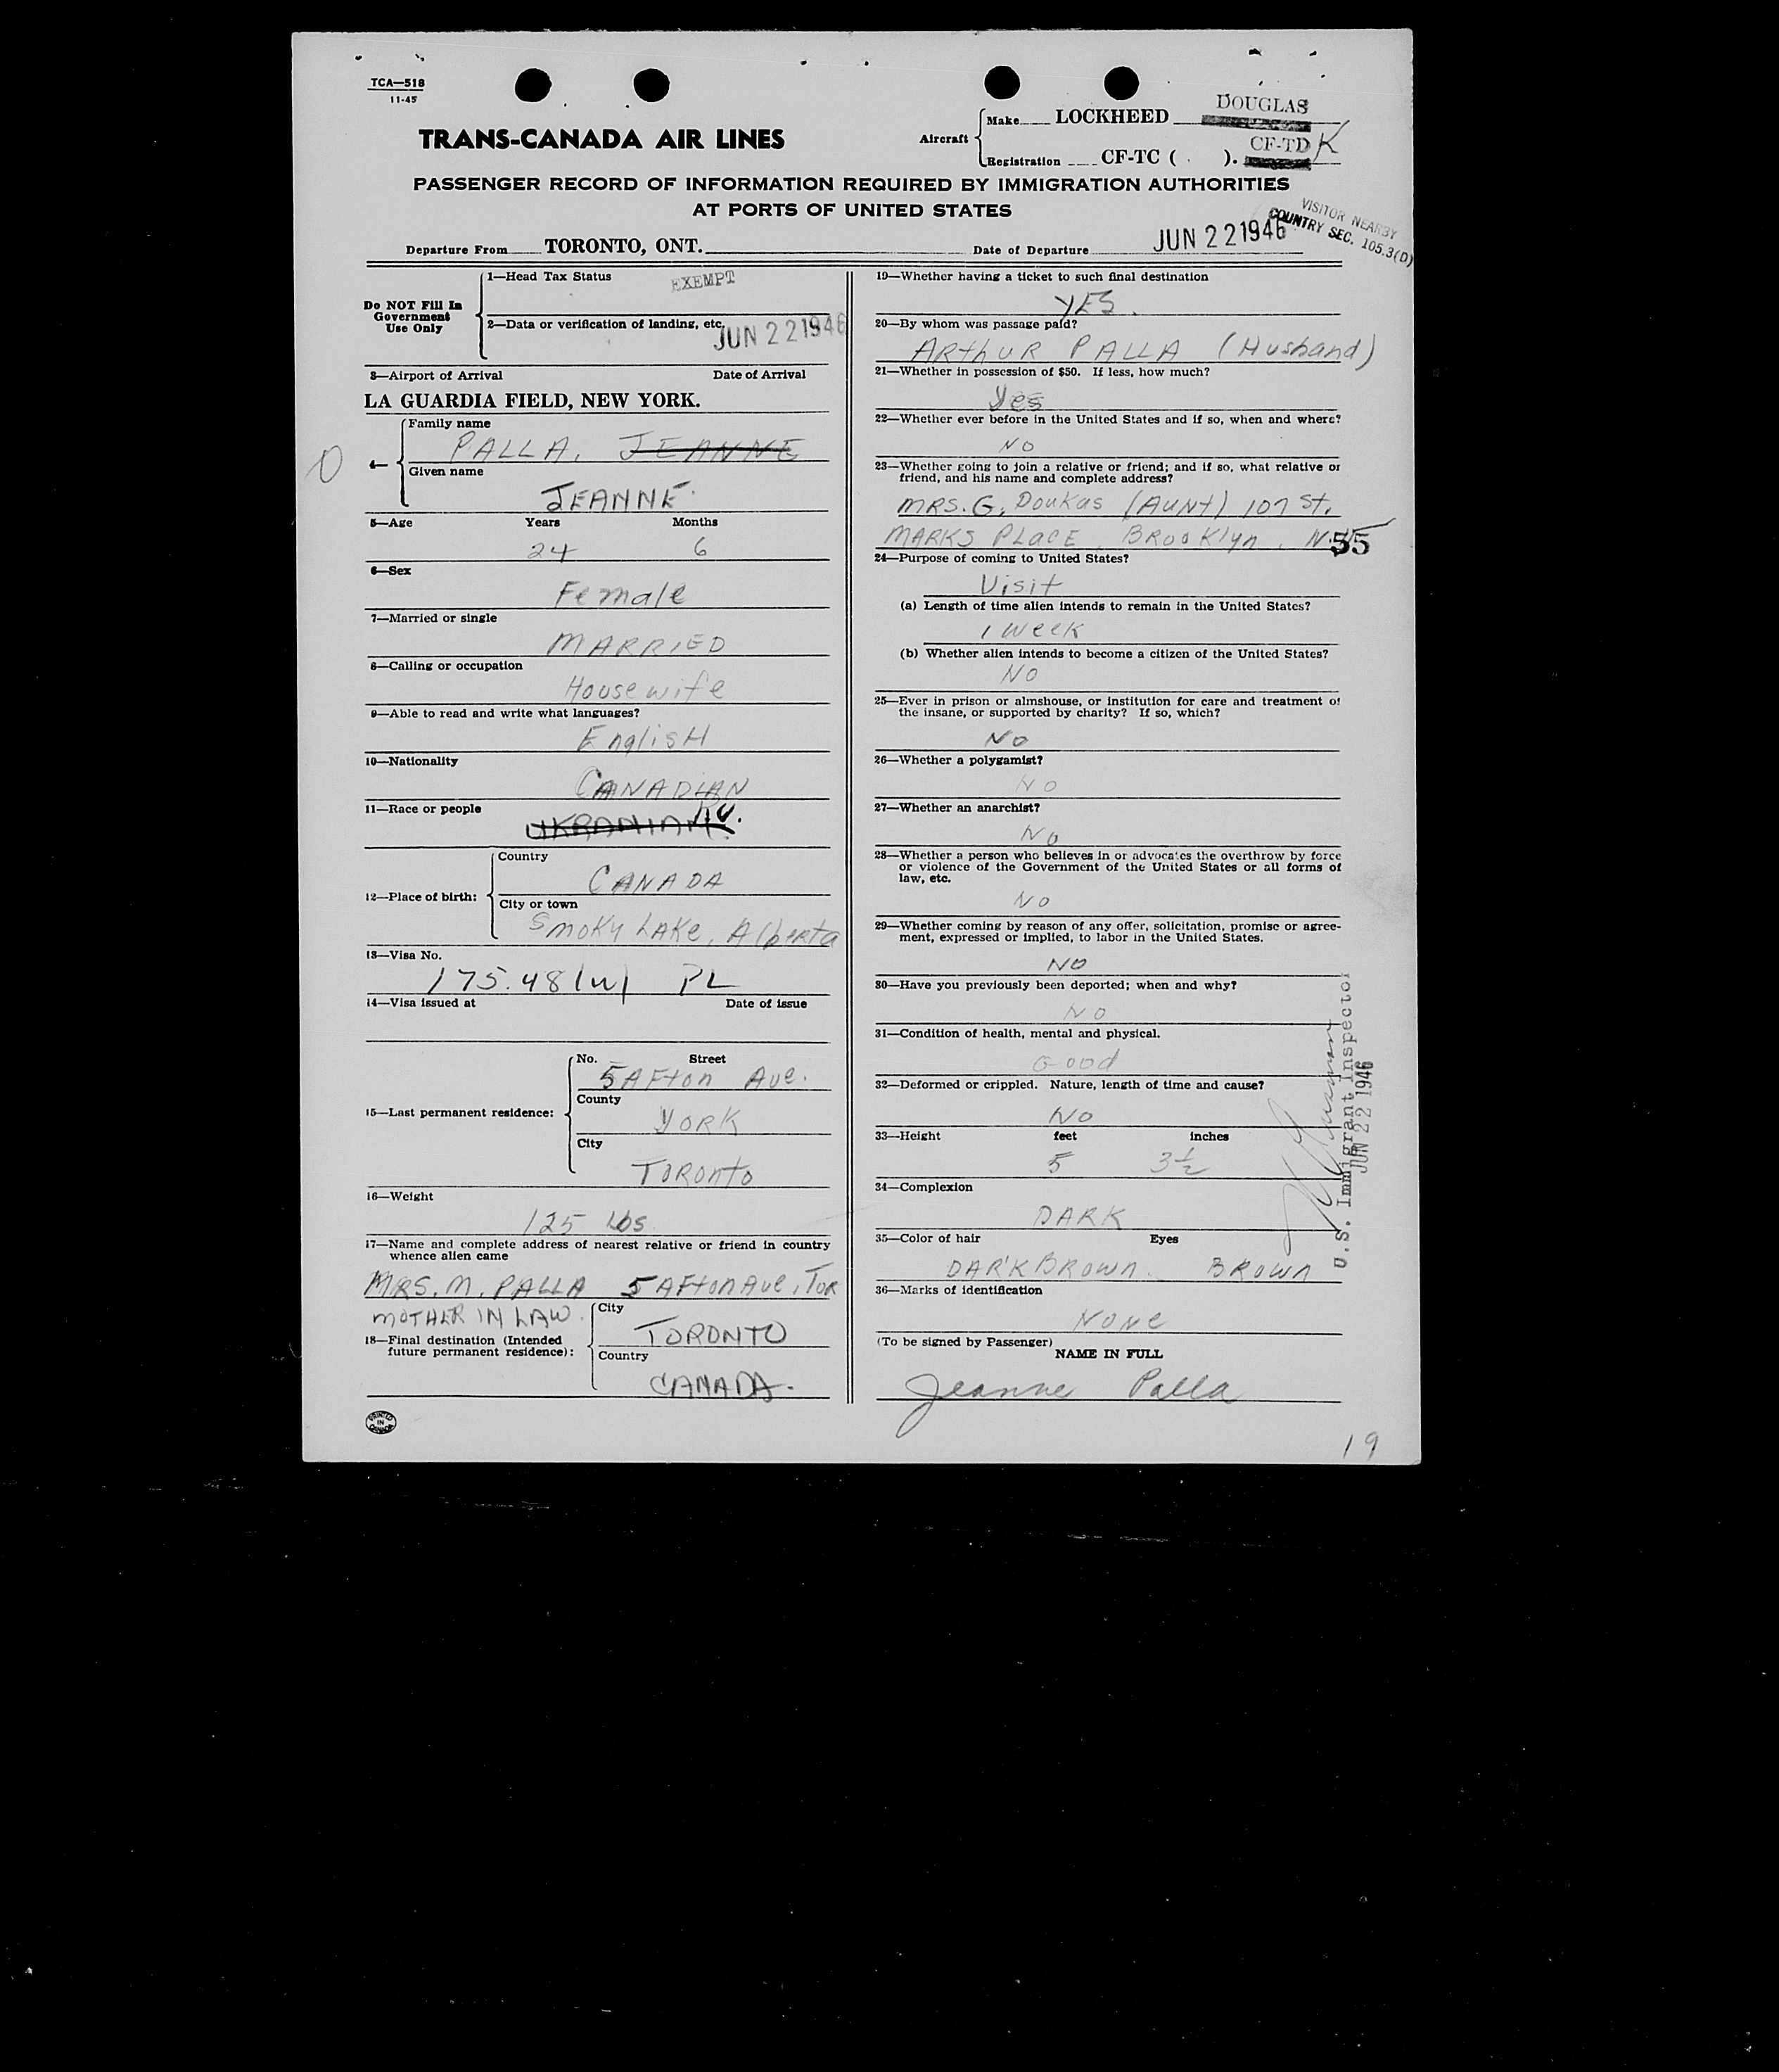 TCA—518
11-45
TRANS-CANADA AIR LINES
Aircraft
Make LOCKHEED DOUGLAS
Registration CF-TC ( ). CF-TD K
PASSENGER RECORD OF INFORMATION REQUIRED BY IMMIGRATION AUTHORITIES
AT PORTS OF UNITED STATES
VISITOR NEARBY
COUNTRY SEC. 105.3(D)
Departure From TORONTO, ONT. Date of Departure JUN 22 1946
Do NOT Fill In
Government
Use Only
1—Head Tax Status EXEMPT
2—Data or verification of landing, etc. JUN 22 1946
3—Airport of Arrival Date of Arrival
LA GUARDIA FIELD, NEW YORK.
4—
Family name
PALLA, JEANNE
Given name
JEANNE
5—Age Years Months
24 6
6—Sex
Female
7—Married or single
MARRIED
8—Calling or occupation
Housewife
9—Able to read and write what languages?
EnglisH
10—Nationality
CANADIAN
11—Race or people
UKRANIAN
12—Place of birth:
Country
CANADA
City or town
Smoky LAKe, Alberta
13—Visa No.
175.48(w) PL
14—Visa issued at Date of issue
15—Last permanent residence:
No. Street
5 AFton Ave.
County
YORK
City
TORonto
16—Weight
125 Lbs
17—Name and complete address of nearest relative or friend in country
whence alien came
MRS. M. PALLA 5 AFton Ave, Tor
MOTHER IN LAW.
18—Final destination (Intended
future permanent residence):
City
TORONTO
Country
CANADA.
PRINTED
IN
CANADA
19—Whether having a ticket to such final destination
YES.
20—By whom was passage paid?
ARthUR PALLA (Husband)
21—Whether in possession of $50. If less, how much?
Yes
22—Whether ever before in the United States and if so, when and where?
NO
23—Whether going to join a relative or friend; and if so, what relative or
friend, and his name and complete address?
MRS. G. Doukas (AUNt) 107 St.
MARKS PLacE, BRooKlyn, N.Y.
55
24—Purpose of coming to United States?
Visit
(a) Length of time alien intends to remain in the United States?
1 Week
(b) Whether alien intends to become a citizen of the United States?
NO
25—Ever in prison or almshouse, or institution for care and treatment of
the insane, or supported by charity? If so, which?
NO
26—Whether a polygamist?
NO
27—Whether an anarchist?
NO
28—Whether a person who believes in or advocates the overthrow by force
or violence of the Government of the United States or all forms of
law, etc.
NO
29—Whether coming by reason of any offer, solicitation, promise or agree-
ment, expressed or implied, to labor in the United States.
NO
30—Have you previously been deported; when and why?
NO
31—Condition of health, mental and physical.
Good
32—Deformed or crippled. Nature, length of time and cause?
NO
33—Height feet inches
5 3½
34—Complexion
DARK
35—Color of hair Eyes
DARK BROWN. BROWN
36—Marks of identification
NONE
(To be signed by Passenger)
NAME IN FULL
Jeanne Palla
U.S. Immigrant Inspector
JUN 22 1946
19